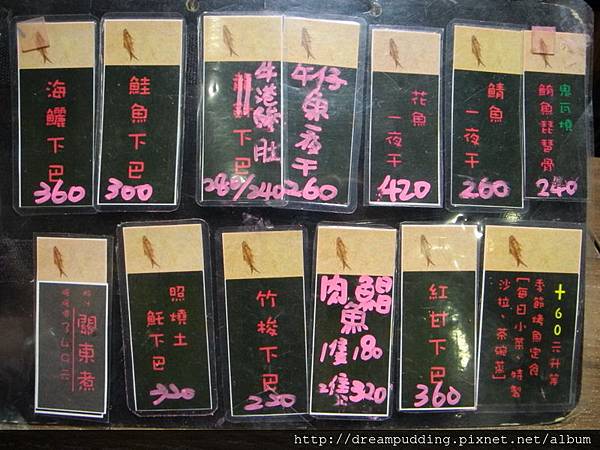 海鱺下巴
360
鮭魚下巴
300
下巴
280/240
午仔魚一夜干
260
花魚一夜干
420
鯖魚一夜干
260
鬼瓦燒
鮪魚琵琶骨
240
關東煮
照燒土魠下巴
320
竹梭下巴
250
肉鯧魚
1隻180
2隻320
紅甘下巴
360
+60元升等
季節烤魚定食
[每日小菜、特製
沙拉、茶碗蒸]
http://dreampudding.pixnet.net/album